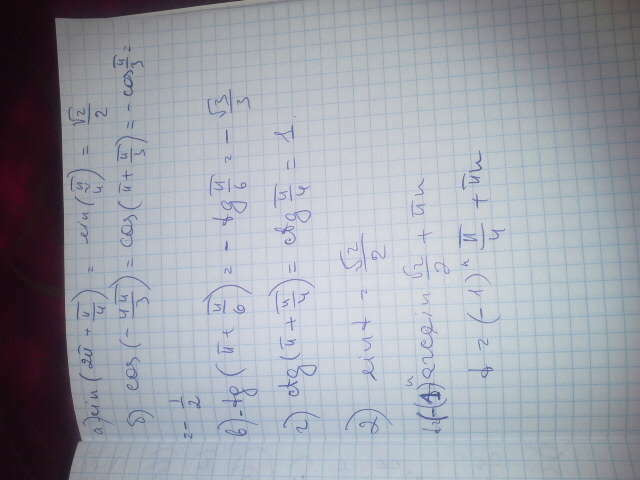 а) sin(2π + π/4) = sin(π/4) = √2/2
б) cos(-4π/3) = cos(π + π/3) = -cos π/3 =
= - 1/2
в) -tg(π + π/6) = - tg π/6 = - √3/3
г) ctg(π + π/4) = ctg π/4 = 1.
2) sin t = √2/2
(-1)ⁿ arcsin √2/2 + πn
t = (-1)ⁿ π/4 + πn